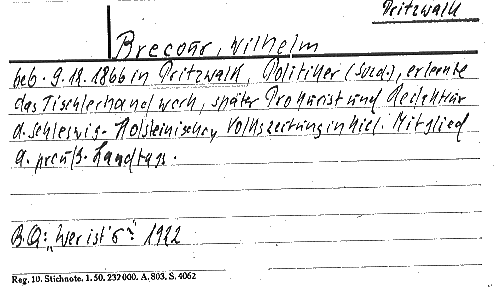 Pritzwalk
Brecour, Wilhelm
geb. 9.12.1866 in Pritzwalk, Politiker (Sozd.), erlernte
das Tischlerhandwerk, später Prokurist und Redaktör
d. Schleswig-Holsteinischen Volkszeitung in Kiel. Mitglied
d. preuß. Landtags.
B.Q: "Wer ist's": 1922
Reg. 10. Stichnote. 1. 50. 232000. A. 803. S. 4062